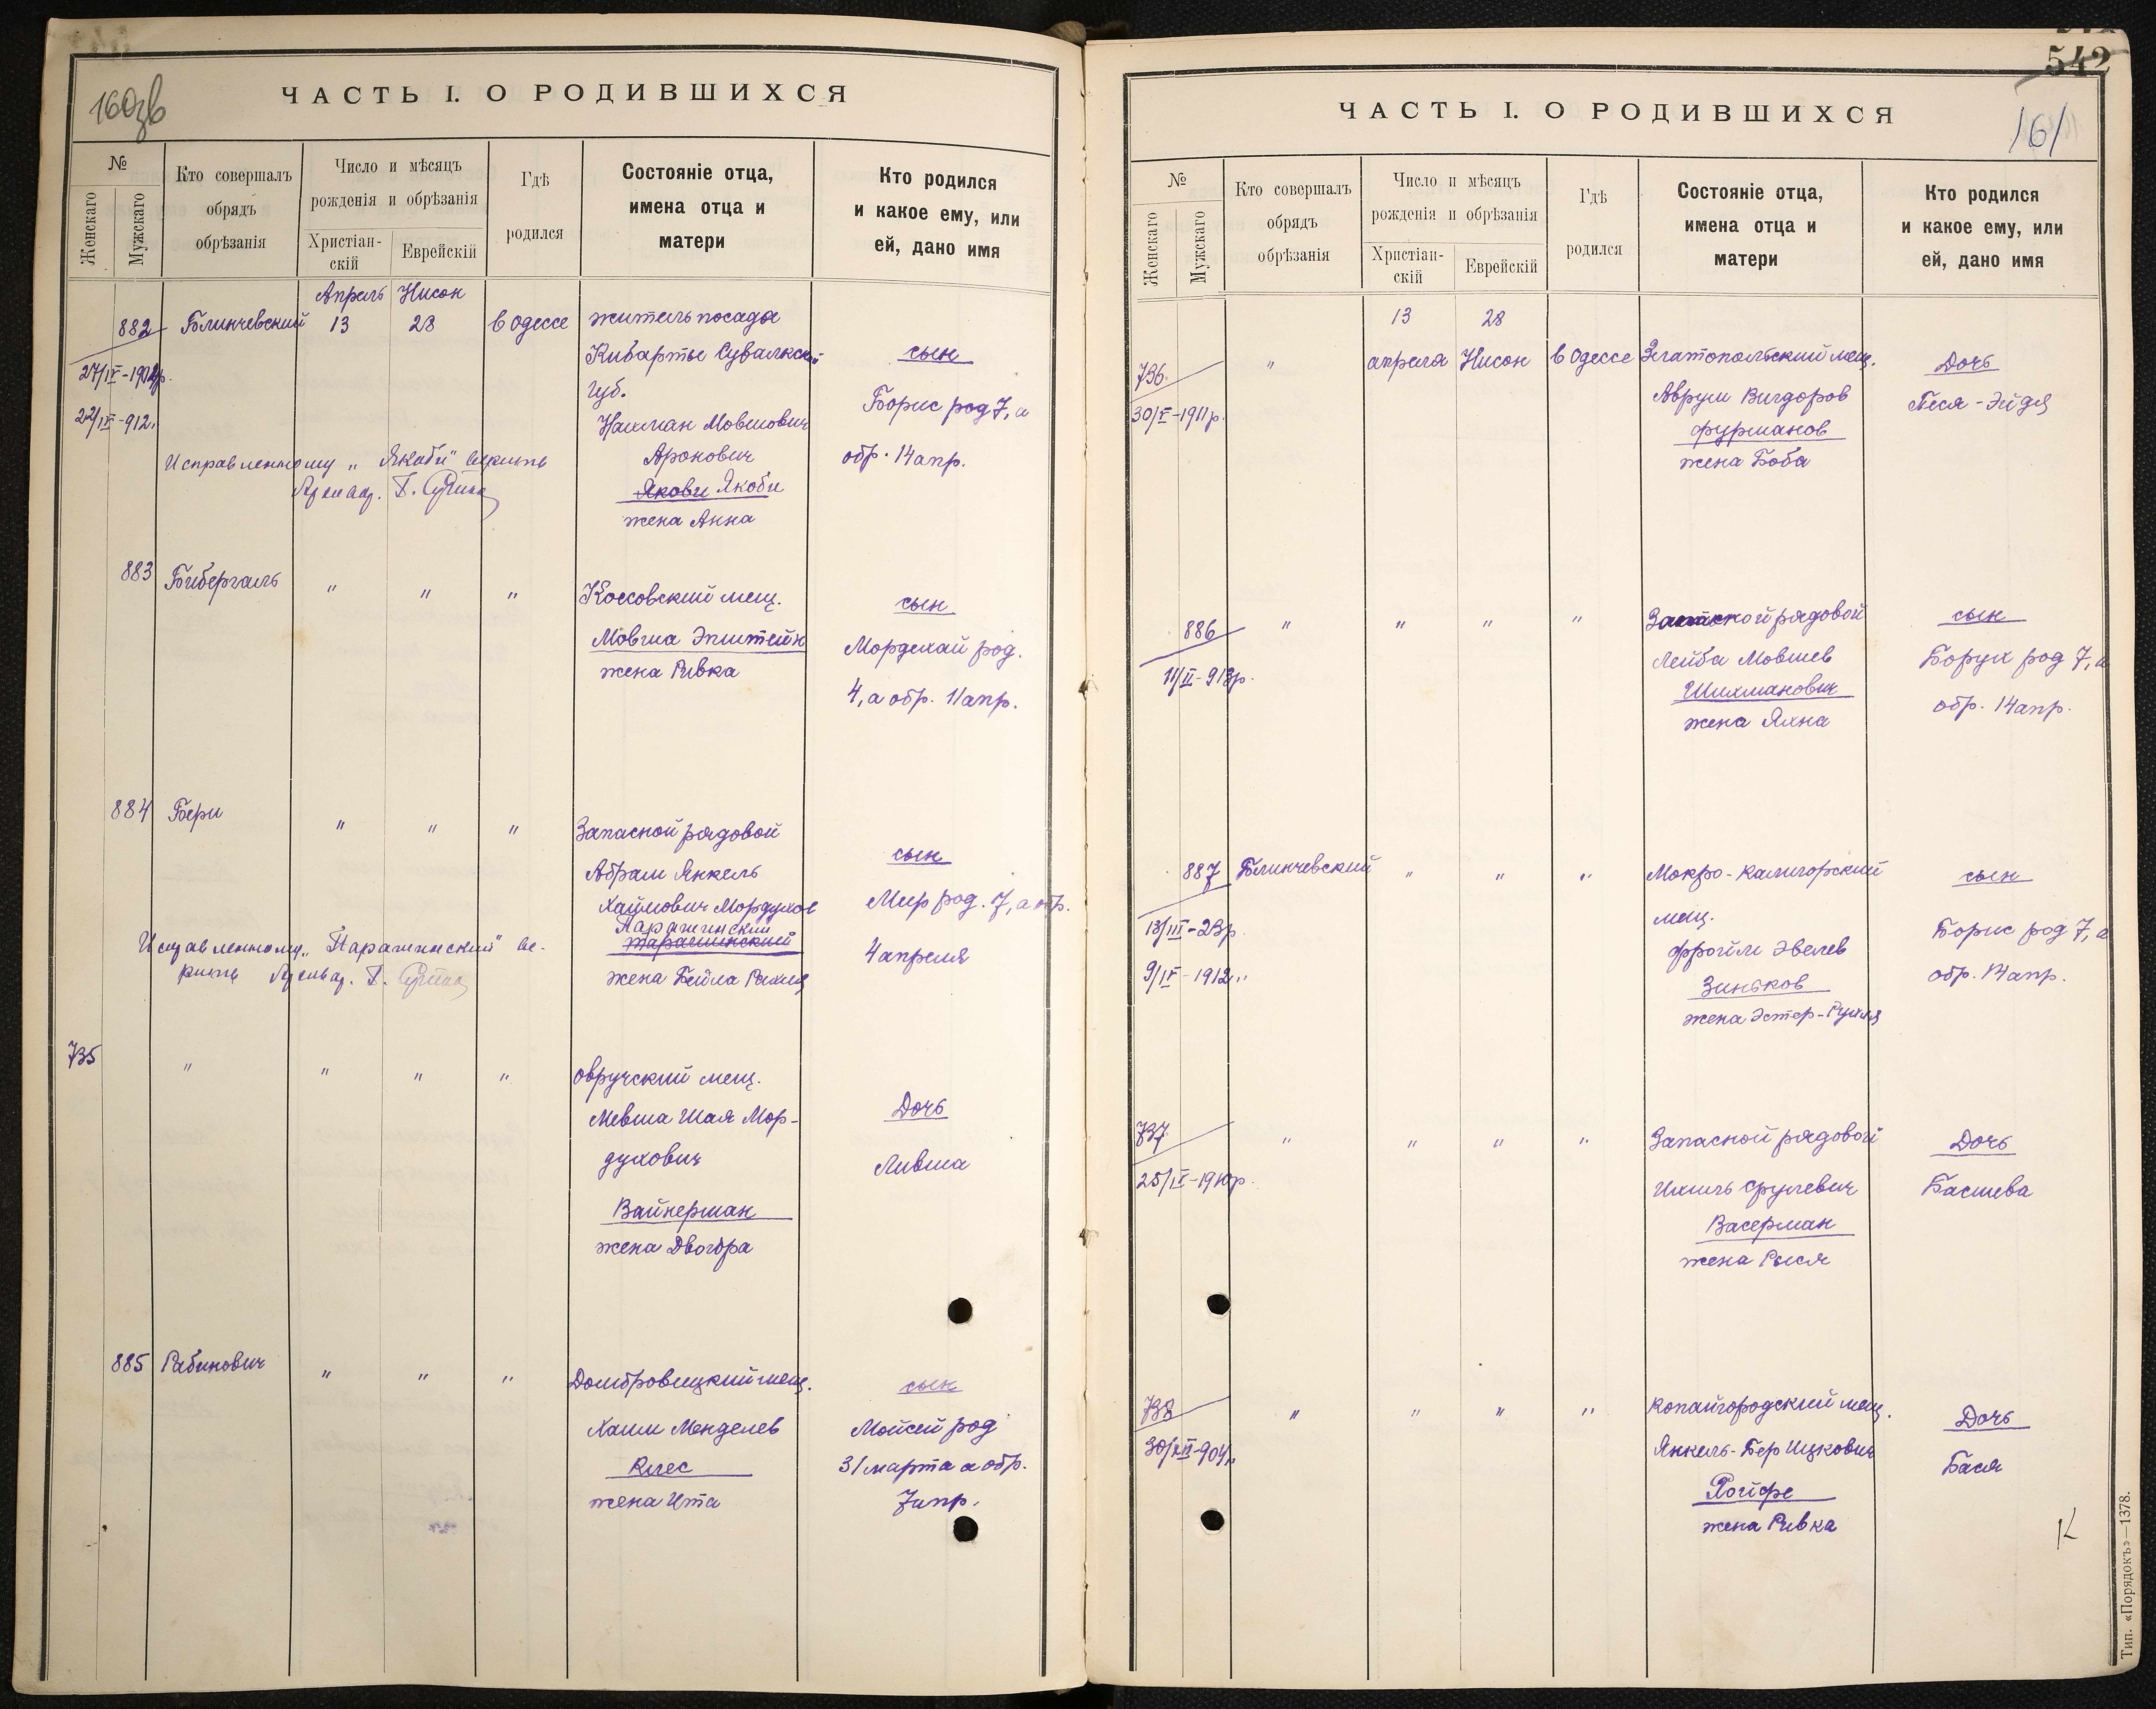 160зв
ЧАСТЬ I. О РОДИВШИХСЯ
№
Женскаго
Мужскаго
Кто совершалъ
обрядъ
обрѣзанія
Число и мѣсяцъ
рожденія и обрѣзанія
Христіан-
скій
Еврейскій
Гдѣ
родился
Состояніе отца,
имена отца и
матери
Кто родился
и какое ему, или
ей, дано имя
Апрель Нисон
882 Блинчевский 13 28 в Одессе житель посада
Кибарты Сувалкской
губ.
Нахман Мовшович
Аронович
Якови Якоби
жена Анна
сын
Борис род 7, а
обр. 14 апр.
22/IX-912.
Исправленному „Якоби" верить
883 Бибергаль " " " Коссовский мещ.
Мовша Эпштейн
жена Ривка
сын
Мордехай род.
4, а обр. 11 апр.
884 Бери " " " Запасной рядовой
Абрам Янкель
Хаймович Мордухов
Паращинский
жена Бейла Рохля
сын
Меир род. 7, а обр.
4 апреля
Исправленному „Паращинский" ве-
рить
735 " " " " Овручский мещ.
Мевша Шая Мор-
духович
Вайнерман
жена Двойра
Дочь
Ливша
885 Рабинович " " " Домбровицкий мещ.
Хаим Менделев
Клес
жена Ита
сын
Мойсей род
31 марта а обр.
7 апр.
542
161
ЧАСТЬ I. О РОДИВШИХСЯ
№
Женскаго
Мужскаго
Кто совершалъ
обрядъ
обрѣзанія
Число и мѣсяцъ
рожденія и обрѣзанія
Христіан-
скій
Еврейскій
Гдѣ
родился
Состояніе отца,
имена отца и
матери
Кто родился
и какое ему, или
ей, дано имя
13 28
736 " апреля Нисон в Одессе Златопольский мещ.
30/X-1911р.
Аврум Вигдоров
Фурманов
жена Боба
Дочь
Песя-Эйдя
886 " " " " Запасной рядовой
11/II-913р.
Лейба Мовшев
Шихманович
жена Яхна
сын
Борух род 7, а
обр. 14 апр.
887 Блинчевский " " " Мокро-Калигорский
мещ.
13/III-23р.
9/IX-1912
Фройм Эвелев
Зиньков
жена Эстер-Рухля
сын
Борис род 7, а
обр. 14 апр.
737 " " " " Запасной рядовой
25/IX-1910р.
Ихиль Срулевич
Васерман
жена Рыся
Дочь
Басшева
738 " " " " Копайгородский мещ.
Янкель-Бер Ицкович
Ройфе
жена Ривка
Дочь
Бася
К
Тип. «Порядокъ»—1378.